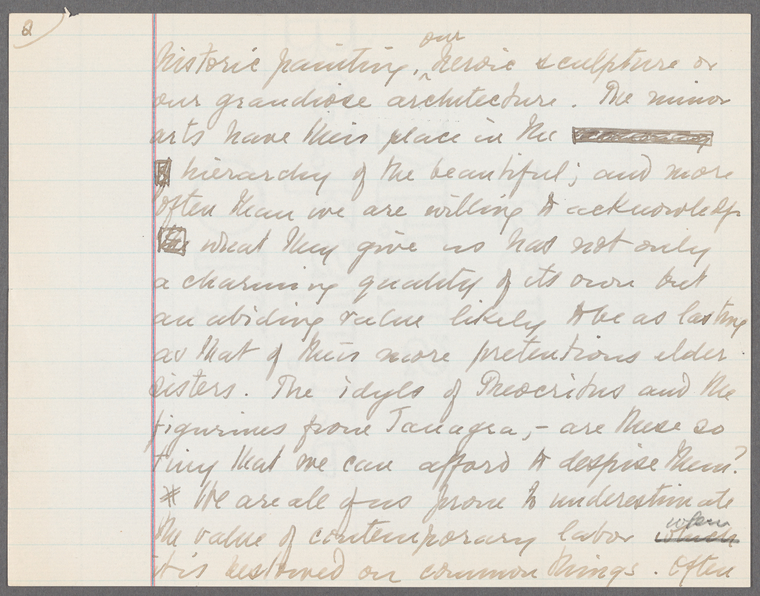 2
historic painting, our heroic sculpture or
our grandiose architecture. The minor
arts have their place in the
hierarchy of the beautiful; and more
often than we are willing to acknowledge
what they give us has not only
a charming quality of its own but
an abiding value likely to be as lasting
as that of their more pretentious elder
sisters. The idyls of Theocritus and the
figurines from Tanagra,- are these so
tiny that we can afford to despise them?
* We are all of us prone to underestimate
the value of contemporary labor when
it is bestowed on common things. Often